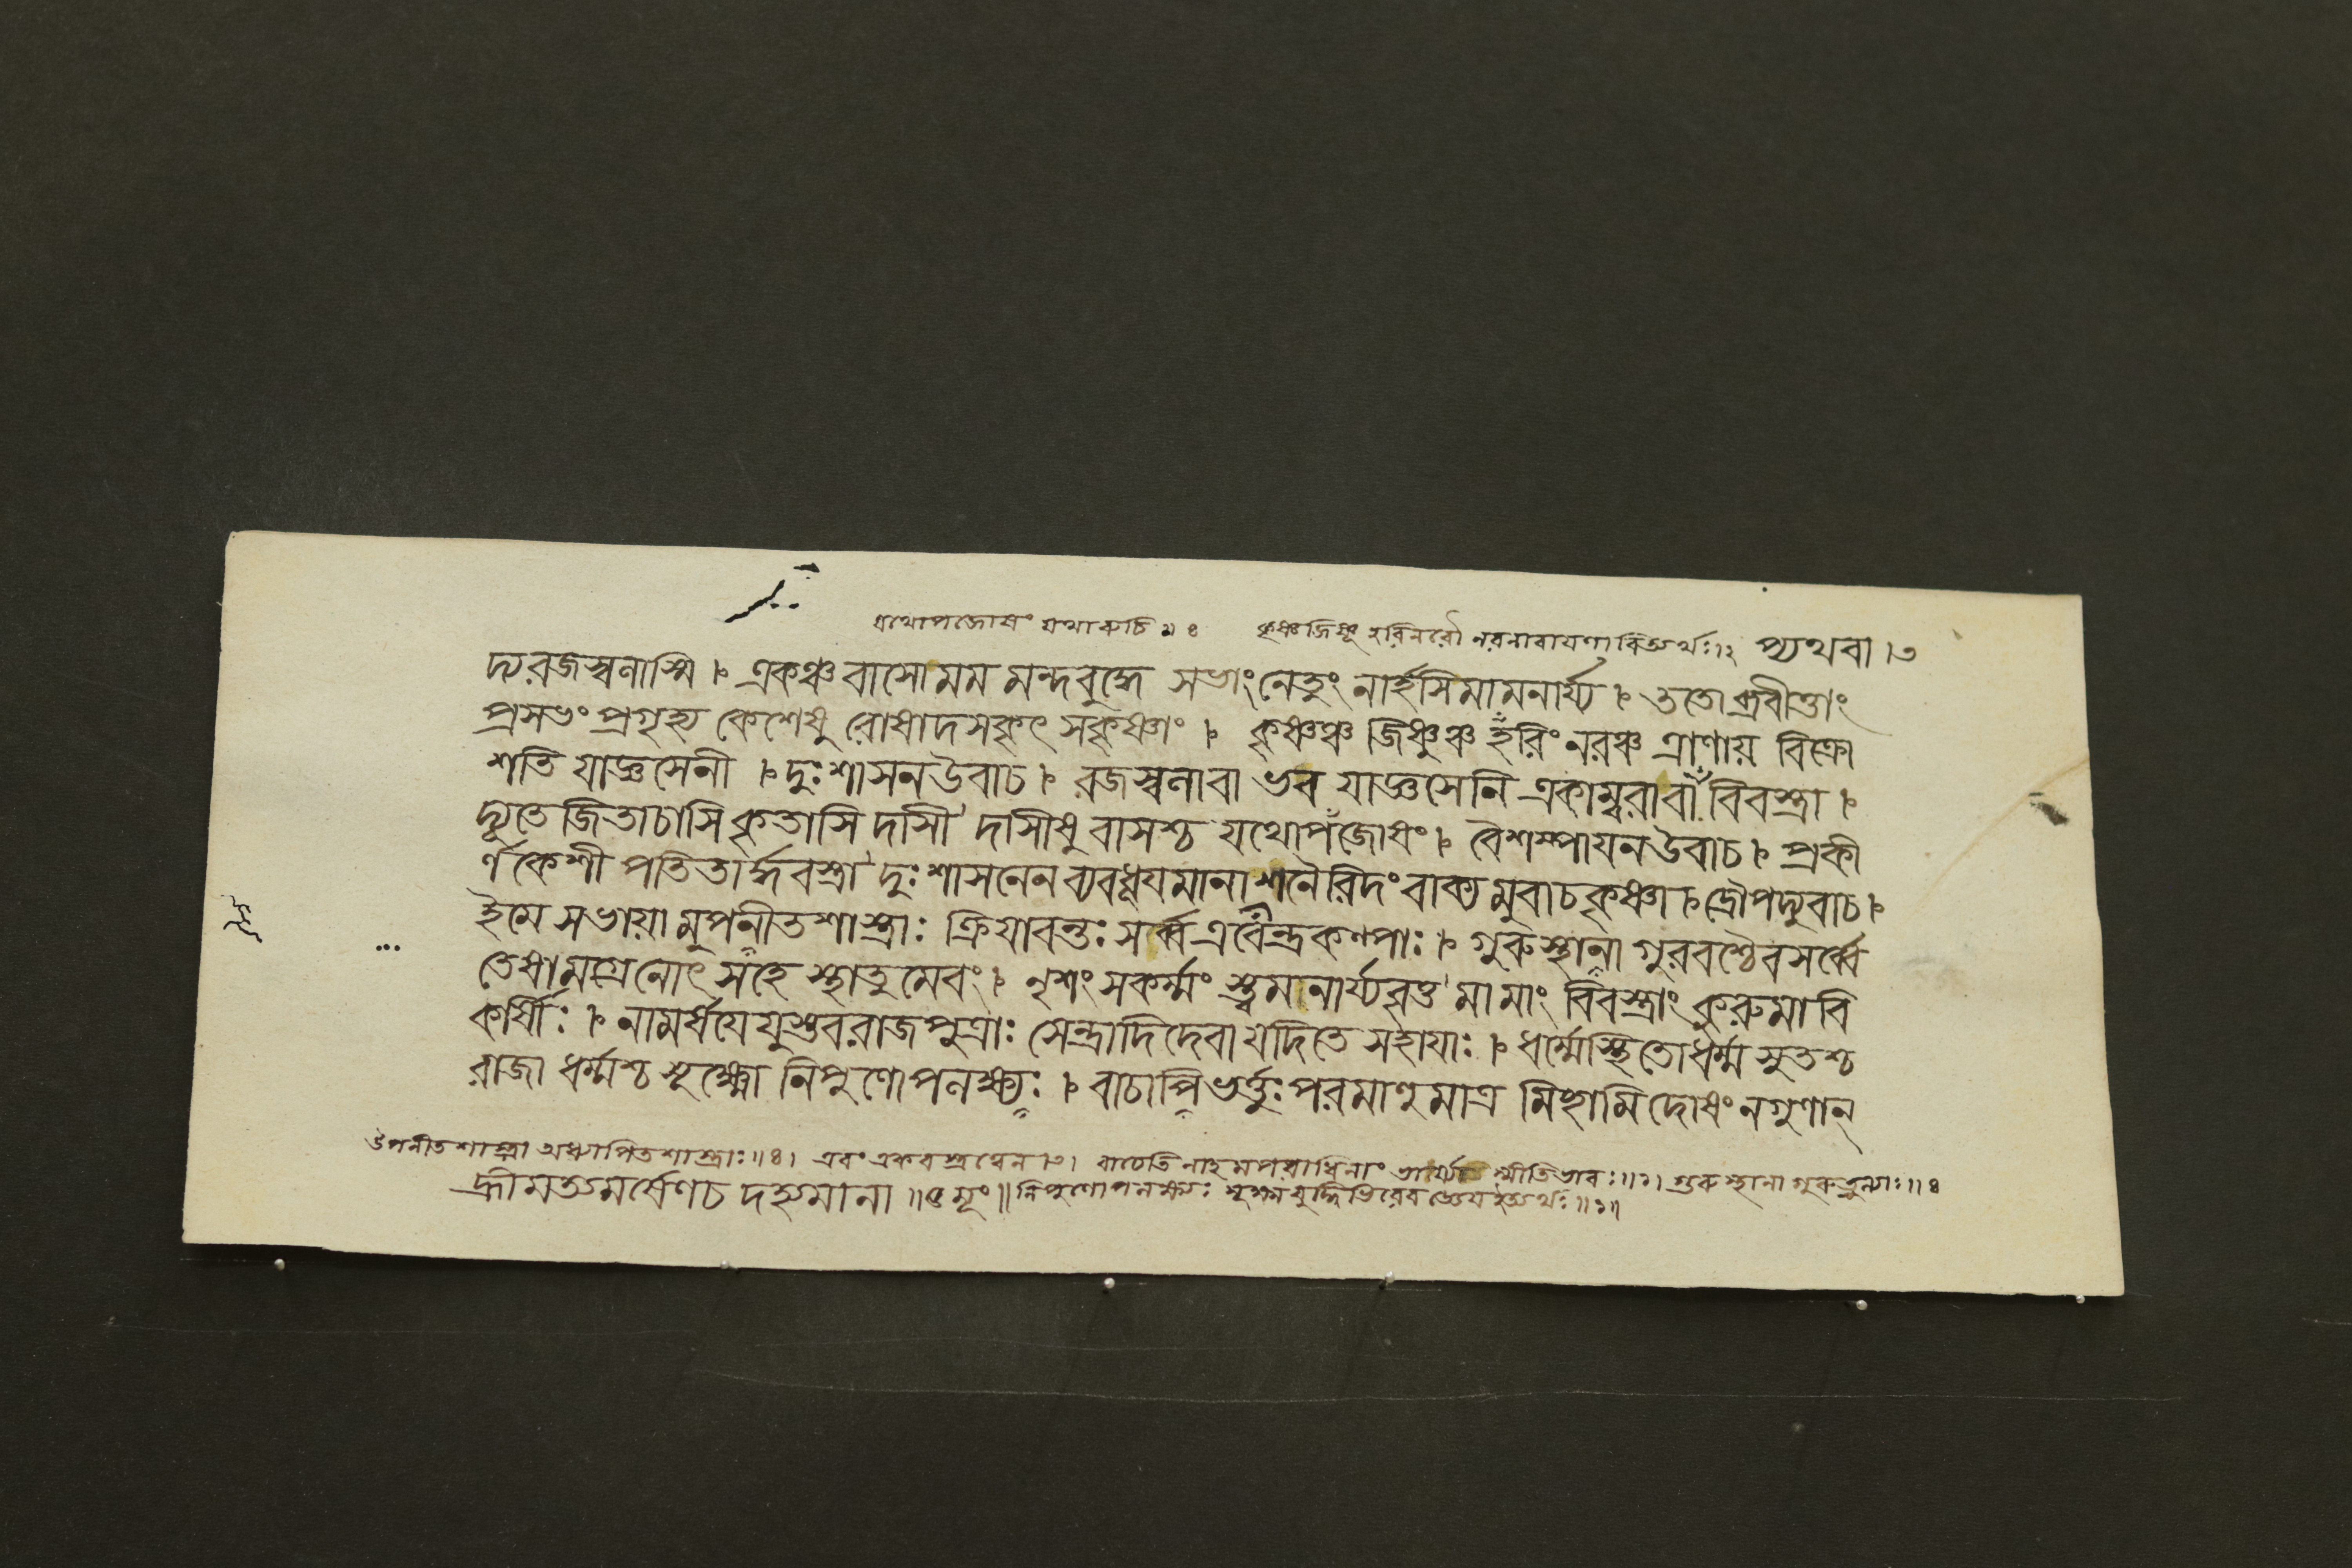 যথোপজোষং যথারুচি ॥ ৪ কৃষ্ণজিষ্ণূ হরিনরৌ নরনারাযণাবিত্যর্থঃ।২ প্যথবা।৩
দ্যরজস্বলাস্মি । একঞ্চ বাসো মম মন্দবুদ্ধে সভাং নেতুং নার্হসি মামনার্য্য । ততোব্রবীত্তাং
প্রসভং প্রগৃহ্য কেশেষু রোষাদসকৃৎ সকৃষ্ণাং । কৃষ্ণঞ্চ জিষ্ণুঞ্চ হরিং নরঞ্চ ত্রাণায় বিক্রো
শতি যাজ্ঞসেনী । দুঃশাসনউবাচ । রজস্বলাবা ভব যাজ্ঞসেনি একাম্বরাবা বিবস্ত্রা ।
দ্যূতে জিতাচাসি কৃতাসি দাসী দাসীষু বাসশ্চ যথোপজোষং । বৈশম্পাযনউবাচ । প্রকী
র্ণকেশী পতিতার্দ্ধবস্ত্রা দুঃশাসনেন ব্যবধূযমানা শনৈরিদং বাক্যমুবাচ কৃষ্ণা । দ্রৌপদ্যুবাচ ।
ইমে সভায়ামুপনীতশাস্ত্রাঃ ক্রিযাবন্তঃ সর্ব্ব এবেন্দ্রকল্পাঃ । গুরুস্থানা গুরবশ্চৈব সর্ব্বে
তেষামগ্রে নোৎসহে স্থাতুমেবং । নৃশংসকর্ম্মং স্ত্বমনার্য্যবৃত্ত মামাং বিবস্ত্রাং কুরু মাবি
কর্ষীঃ । নামর্ষযেযুস্তব রাজপুত্রাঃ সেন্দ্রাদিদেবা যদি তে সহাযাঃ । ধর্ম্মেস্থিতো ধর্ম্মসুতশ্চ
রাজা ধর্ম্মশ্চ সূক্ষ্মো নিপুণোপলক্ষ্যঃ । বাচাপি ভর্ত্তুঃ পরমাণুমাত্র মিচ্ছামি দোষং নগুণান্
উপনীতশাস্ত্রা অধ্যাপিতশাস্ত্রাঃ ॥৪। এবং একবস্ত্রত্বেন । বাচেতি ভাবঃ॥১। গুরুস্থানা গুরুতুল্যাঃ॥৪
হ্রীমত্যমর্ষেণ চ দহ্যমানা ॥ নিপুণোপলক্ষ্যঃ সূক্ষ্মবুদ্ধিভিরেব জ্ঞেয ইত্যর্থঃ॥১॥